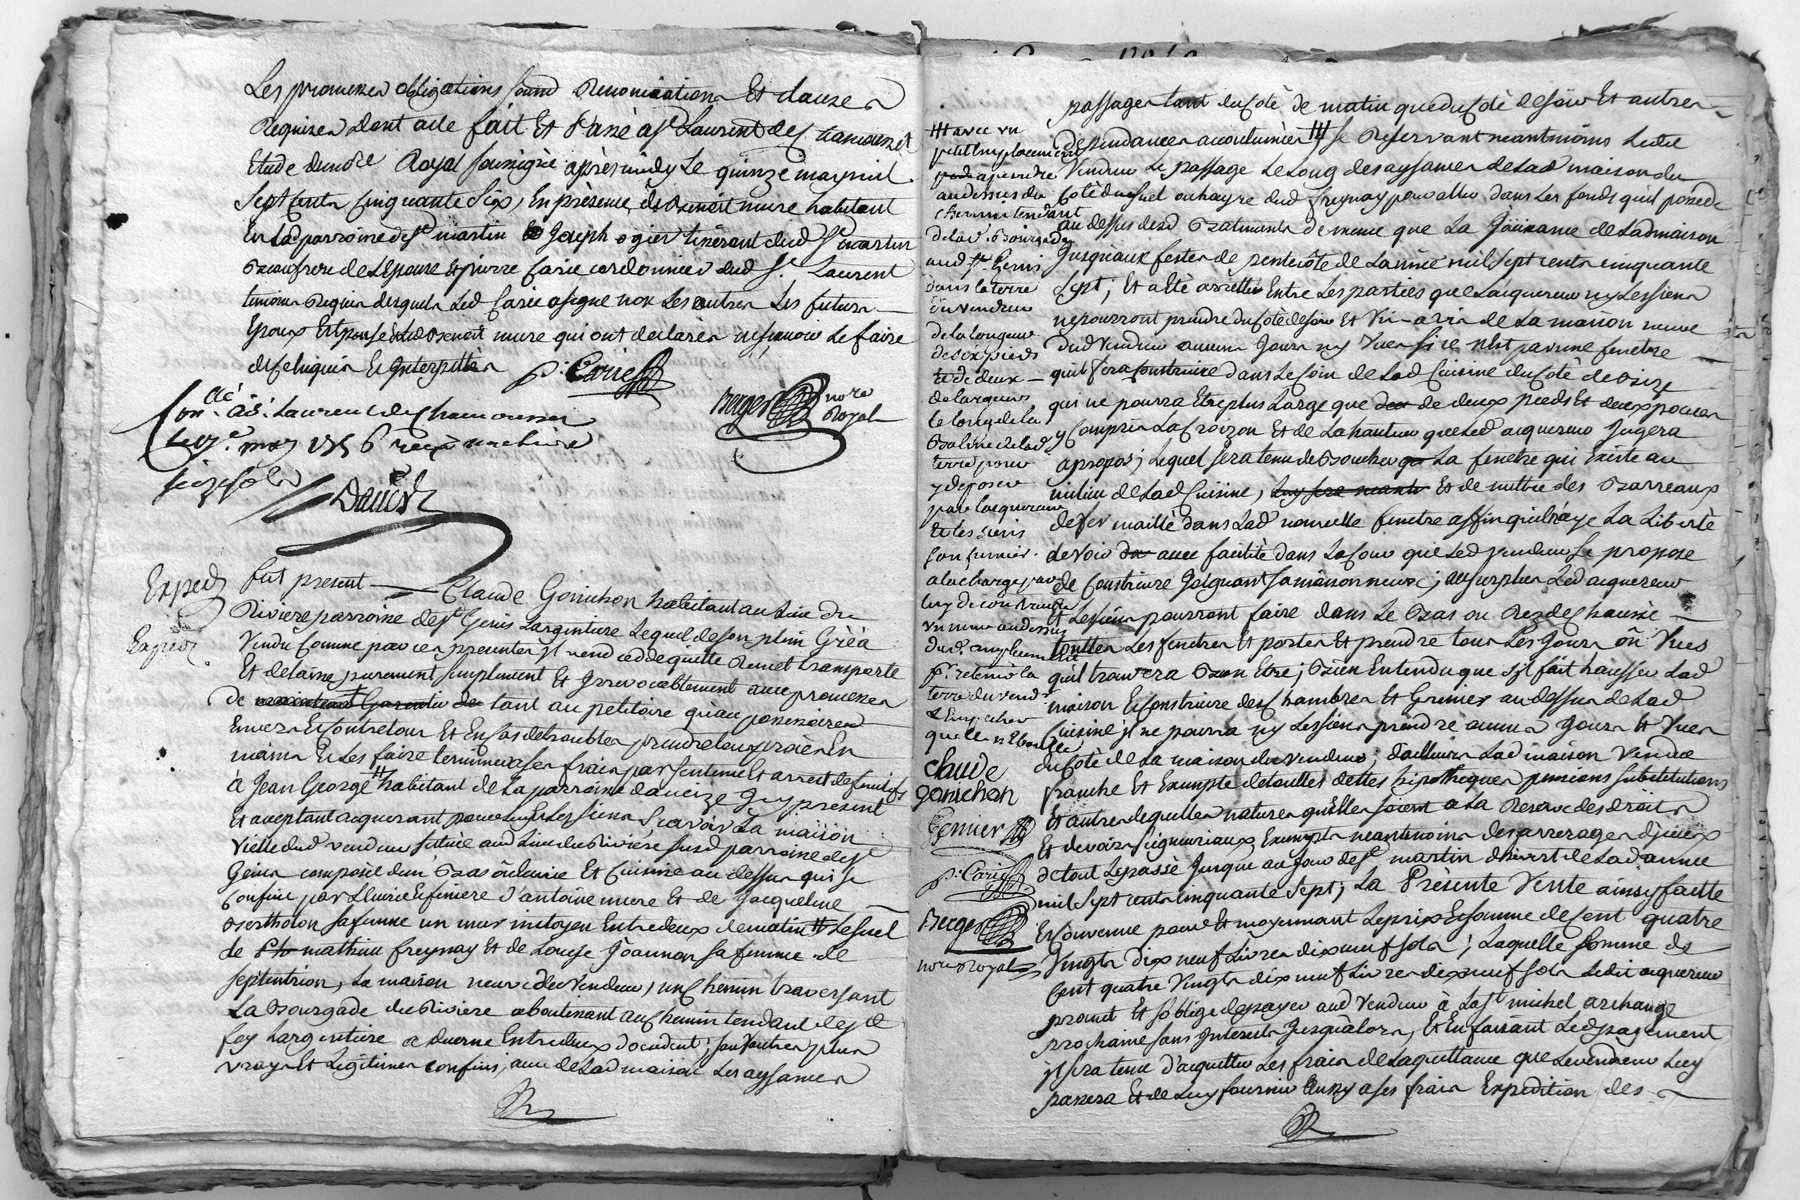 Les promesses obligations soumis Renonciations Et clauses
Requises dont acte fait Et Passé a St Laurent de chamousset
Etude du nore Royal soussigné après midy Le quinze may mil
sept Cents Cinquante Six, En présence de Benoit mure habitant
En Lad parroisse de St martin Joseph ogier tixerant dud St martin
Beaufrere de Lepouse Et pierre Carie cordonnier dud St. Laurent
temoins Requis desquels Led Carie a signé non Les autres Les futurs
Epoux Et Led Benoit mure qui ont declarés ne scavoir Le faire
de ce Enquis Et Interpellés
P. Carie
Berger nore Royal
Conlé à St. Laurent de Chamousset
le may 1756 reçu
seize sols
David
Exped
Exped
fut present Claude Gonichon habitant au Lieu de
Riviere parroisse de St Genis Largentiere Lequel de son plein Gré a
Vendu Comme par ces presentes il vend cedde quitte Remet transporte
Et delaisse purement simplement Et Irrevocablement avec promesses
de tant au petitoire qu'au possessoire
Envers Et Contre tous Et En Cas de troubles prendre Les procés En
mains Et Les faire terminer a ses frais par sentence Et arrest definitifs
à Jean George habitant de La parroisse Icy present
Et acceptant acquerant pour Luy Et Les siens Scavoir La maison
Vielle dud vendeur située aud Lieu de Riviere susd parroisse de St
Genis composée d'un Bas Et Cuisine au dessus qui se
Confine par d'antoine mure Et de Jacqueline
Bertholon sa femme un mur mitoyen Entredeux de matin
de mathieu freynay Et de Louise Joannon sa femme de
septentrion, La maison neuve du Vendeur, un Chemin traversant
La Bourgade de Riviere aboutissant au Chemin tendant de Ste
foy Largentiere a duerne Entredeux d'occident; sauf autres plus
vrays Et Legitimes confins, avec de Lad maison Les aysances
passages tant du Coté de matin que du Coté de soir Et autres
dependances accoutumées se Reservant neantmoins Ledit
Vendeur Le passage Le Long des aysances de Lad maison du
Coté dud freynay pour aller dans Les fonds qu'il possede
au dessus desd Batiments de meme que La Jouissance de Lad maison
Jusqu'aux festes de pentecôte de Lannée mil sept cents cinquante
sept; Et a eté arretté Entre Les parties que L'acquereur ny Les siens
ne pourront prendre du Coté de soir Et Vis-a-vis de La maison neuve
dud Vendeur aucuns Jours ny Vues si ce n'est par une fenetre
quil fera Construire dans Le Coin de Lad Cuisine du Coté de Bize
qui ne pourra Etre plus Large que de deux pieds Et deux pouces
y Compris La Croizon Et de La hauteur que Led acquereur Jugera
apropos; Lequel sera tenu de Boucher La fenetre qui Existe au
milieu de Lad Cuisine, Et de mettre des Barreaux
de fer maillé dans Lad nouvelle fenetre affin quil n'aye La Liberté
de voir avec facilité dans La Cour que Led vendeur se propose
de Construire Joignant sa maison neuve; au surplus Led acquereur
et Les siens pourront faire dans Le Bas ou Rez de Chaussée
touttes Les fenetres Et portes Et prendre tous Les Jours ou Vues
qu'il trouvera Bon Etre; Bien Entendu que s'il fait hausser Lad
maison Et Construire des Chambres Et Greniers au dessus de Lad
Cuisine il ne pourra ny Les siens prendre aucuns Jours Et Vues
du Coté de La maison du Vendeur; d'ailleurs Lad maison Vendue
franche Et Exempte de touttes dettes hipotheques pensions substitutions
Et autres de quelles natures qu'Elles soient a La Reserve des droits
Et devoirs seigneuriaux Exempts neantmoins des arrerages d'Iceux
de tout Le passé Jusque au Jour de St martin d'hivert de Lad année
mil sept cents cinquante sept; La Présente Vente ainsy faitte
Et Convenue pour Et moyennant Le prix Et somme de Cent quatre
Vingts dix neuf Livres dix neuf sols; Laquelle somme de
Cent quatre Vingts dix neuf Livres dix neuf sols Ledit acquereur
promet Et s'oblige de payer aud Vendeur à La St michel archange
prochaine sans Interests Jusqu'alors, Et En faisant Led payement
il sera tenu d'acquitter Les frais de La quittance que Le vendeur Luy
passera Et de Luy fournir aussy a ses frais Expedition des
avec un
petit Emplacement
a prendre
au dessus du
Chemin tendant
de lad. Bourgade
aud St. Genis
dans la terre
du vendeur
de la Longueur
de six pieds
et de deux
de largeur
le long de la
Balme de lad
terre pour
y deposer
par lacquereur
et les siens
son fumier
a la charge par
luy de construire
un mur au dessus
dud. emplacement
pr. retenir la
terre du vendr
Et Empecher
qu'elle n'Eboulle
claude
gonichon
P. Carie
Berger
nore Royal